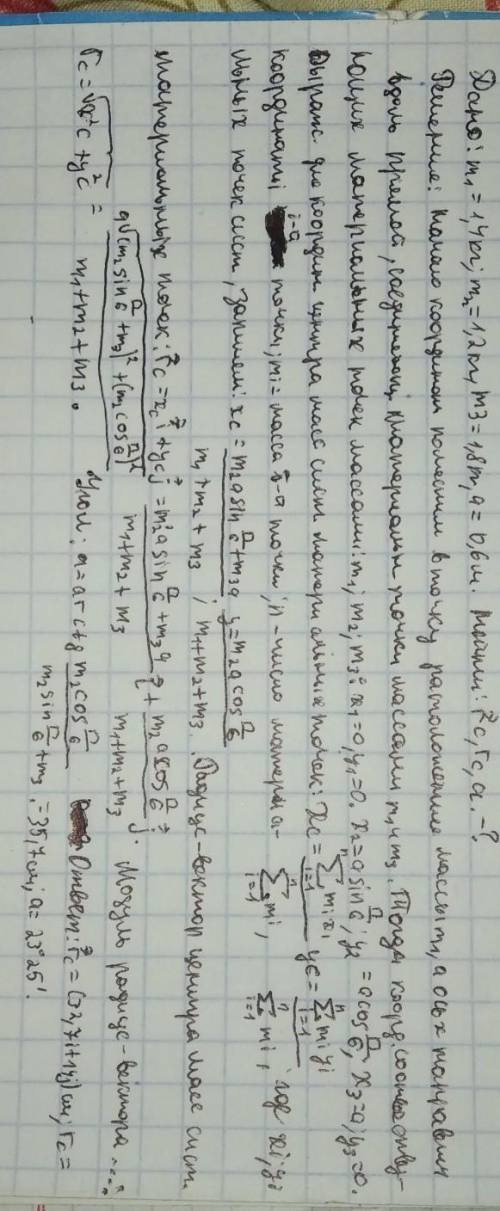 Дано: m1 = 1,4кг; m2 = 1,2кг, m3 = 1,8т, a = 0,6м. Найти: r⃗c, rc, α. -?
Решение: Начало координат поместим в точку расположения массы m, а ось x направим
вдоль прямой, соединяющ. материальн точки массами m1 и m3. Тогда коорд. соответству-
ющих материальных точек массами: m1; m2; m3: x1=0, y1=0. x2=a sin π/6; y2 = a cos π/6, x3=a; y3=0.
Выраж. для координ центра масс сист матери альных точек: xc = Σⁿi=1 mi xi / Σⁿi=1 mi, yc = Σⁿi=1 mi yi / Σⁿi=1 mi, где xi; yi
координаты i-й точки; mi = масса i-й точки; n - число материа-
льных точек сист, запишем: xc = m2 a sin π/6 + m3 a / m1 + m2 + m3; y = m2 a cos π/6 / m1+m2+m3. Радиус-вектор центра масс сист.
материальных точек: r⃗c = xc i⃗ + yc j⃗ = m2 a sin π/6 + m3 a / m1+m2+m3 i⃗ + m2 a cos π/6 / m1+m2+m3 j⃗. Модуль радиус-вектора ....
rc = √x²c + y²c = a√(m2 sin π/6 + m3)² + (m2 cos π/6)² / m1+m2+m3.
Угол: α = arctg m2 cos π/6 / m2 sin π/6 + m3. Ответ: r⃗c =
= 35,7см; α = 23°25'.